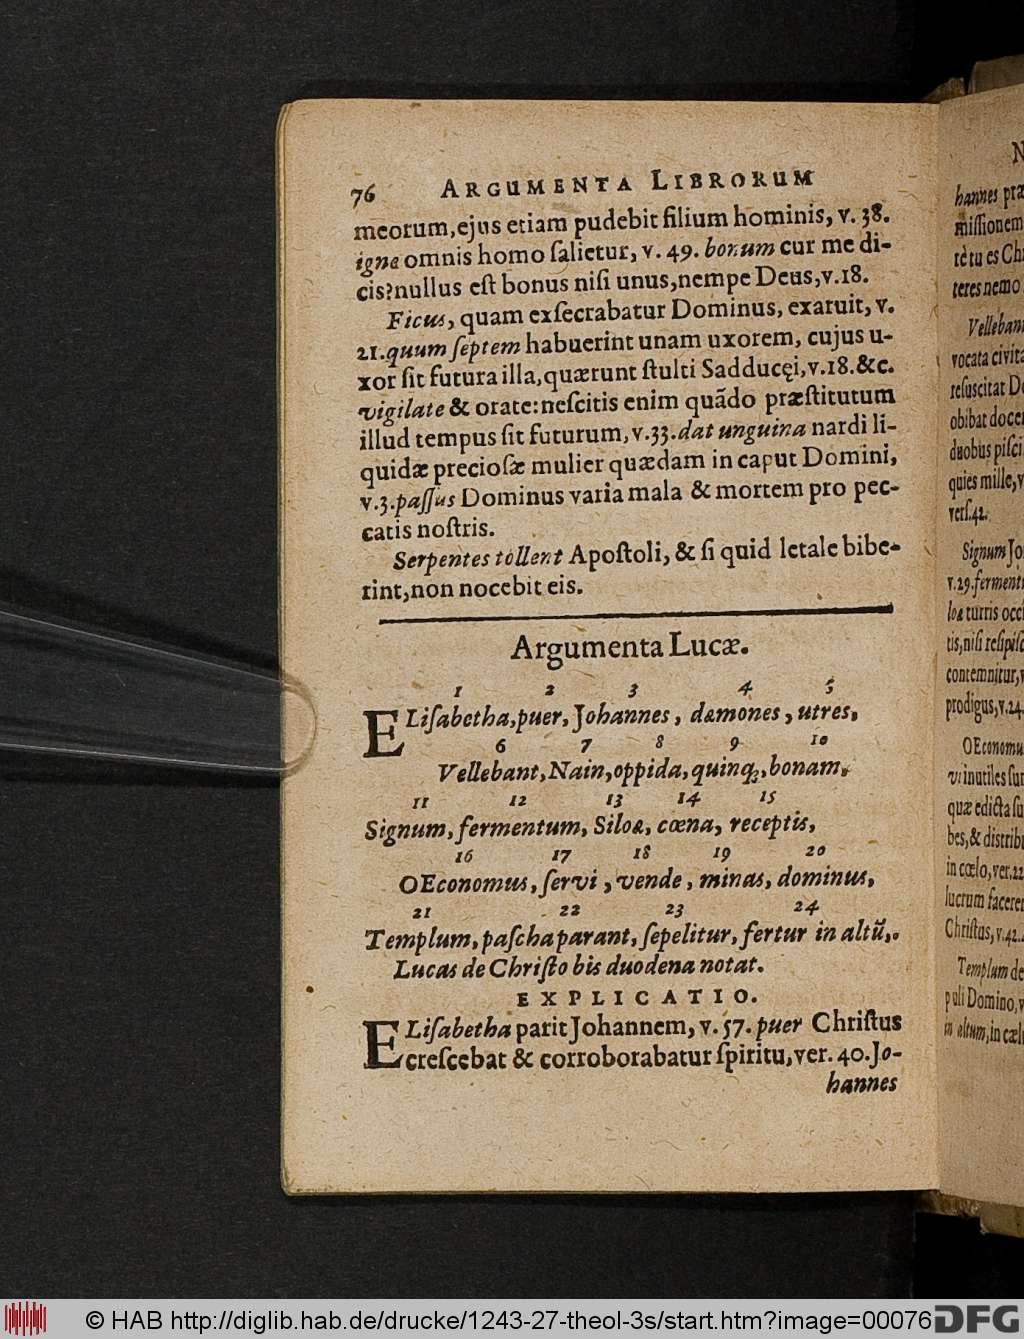 76 ARGUMENTA LIBRORUM
meorum, ejus etiam pudebit filium hominis, v. 38.
igne omnis homo ſalietur, v. 49. bonum cur me di-
cis? nullus eſt bonus niſi unus, nempe Deus, v. 18.
Ficus, quam exſecrabatur Dominus, exaruit, v.
21. quum ſeptem habuerint unam uxorem, cujus u-
xor ſit futura illa, quærunt ſtulti Sadducęi, v. 18. &c.
vigilate & orate: neſcitis enim quãdo præſtitutum
illud tempus ſit futurum, v. 33. dat unguina nardi li-
quidæ precioſæ mulier quædam in caput Domini,
v. 3. paſſus Dominus varia mala & mortem pro pec-
catis noſtris.
Serpentes tollent Apoſtoli, & ſi quid letale bibe-
rint, non nocebit eis.
Argumenta Lucæ.
1 2 3 4 5
ELiſabetha, puer, Johannes, dæmones, utres,
6 7 8 9 10
Vellebant, Nain, oppida, quinq;, bonam,
11 12 13 14 15
Signum, fermentum, Siloæ, cœna, receptis,
16 17 18 19 20
OEconomus, ſervi, vende, minas, dominus,
21 22 23 24
Templum, paſcha parant, ſepelitur, fertur in altũ,.
Lucas de Chriſto bis duodena notat.
EXPLICATIO.
ELiſabetha parit Johannem, v. 57. puer Chriſtus
creſcebat & corroborabatur ſpiritu, ver. 40. Jo-
hannes
hannes
miſſionem
tè tu es
teres nemo
Vellebant
vocata
reſuſcitat
obibat
duobus
quies mille, v
verſ. 42.
Signum
v. 29.
turris
tis, niſi
contemnitur, v
prodigus, v. 24.
inutiles
quæ edicta
bes, &
in cœlo, ver. 22
lucrum
Chriſtus, v. 42.
Templum de
puli Domino, v
in altum, in
© HAB http://diglib.hab.de/drucke/1243-27-theol-3s/start.htm?image=00076 DFG